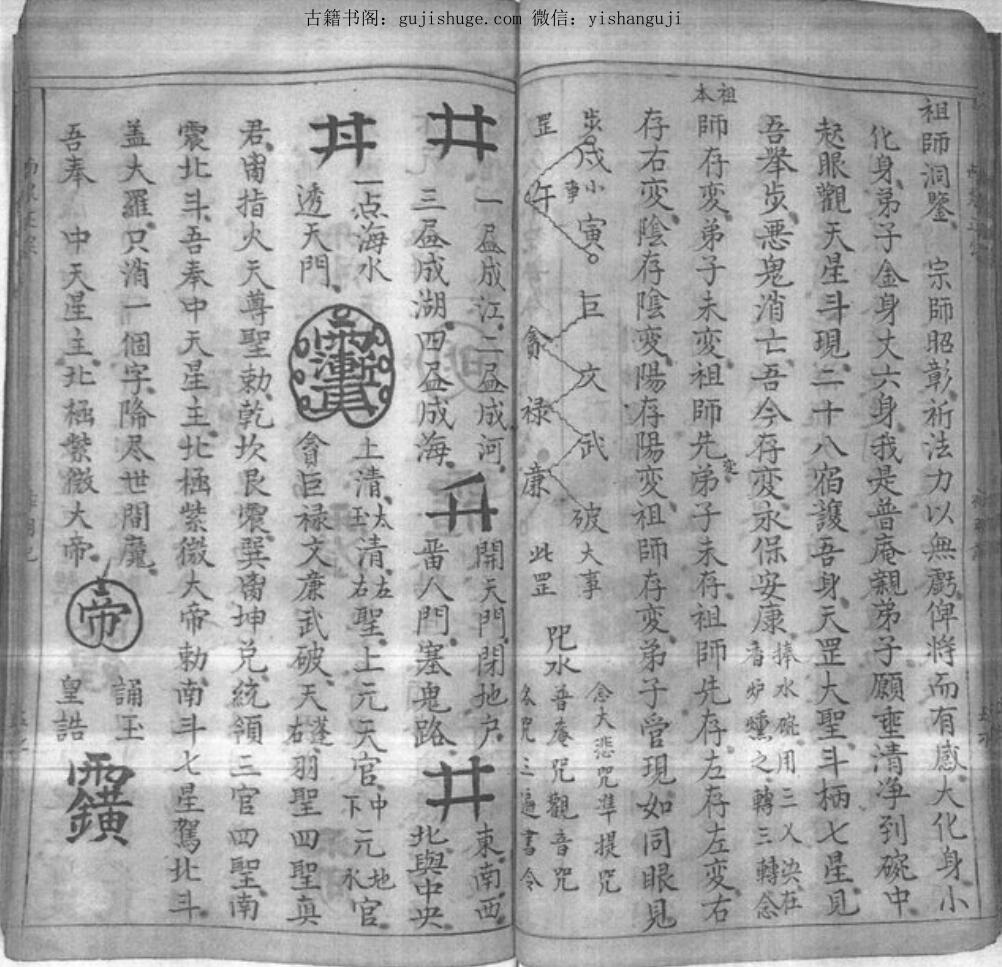 古籍书阁：gujishuge.com 微信：yishanguji
祖師洞鑒 宗師昭彰祈法力以無虧俾將而有感大化身小
化身弟子金身丈六身我是普庵親弟子願垂清净到碗中
起眼觀天星斗現二十八宿護吾身天罡大聖斗柄七星見
吾舉步悪鬼消亡吾今存変永保安康 捧水碗用三人決在
香炉燻之轉三轉念
祖本師存変弟子未変祖師先変弟子未存祖師先存左存左変右
存右変陰存陰変陽存陽変祖師存変弟子官現如同眼見
步戍小事寅巨文武破大事 念大悲咒準提咒
咒水 普庵咒觀音咒
罡午貪禄廉此罡 咒三遍書令
井 一畐成江二畐成河 開天門閉地户 東南西
三畐成湖四畐成海 升 畨人門塞鬼路 井 北與中央
井 一点海水 上清太清玉左右聖上元天官中元地官下水官
透天門 貪巨禄文廉武破天蓬右羽聖四聖真
君雷指火天尊聖勅乾坎艮震巽离坤兑統領三官四聖南
震北斗吾奉中天星主北極紫微大帝勅南斗七星駕北斗
盖大羅只消一個字降尽世間魔 誦玉
吾奉 中天星主北極紫微大帝 帝 皇誥